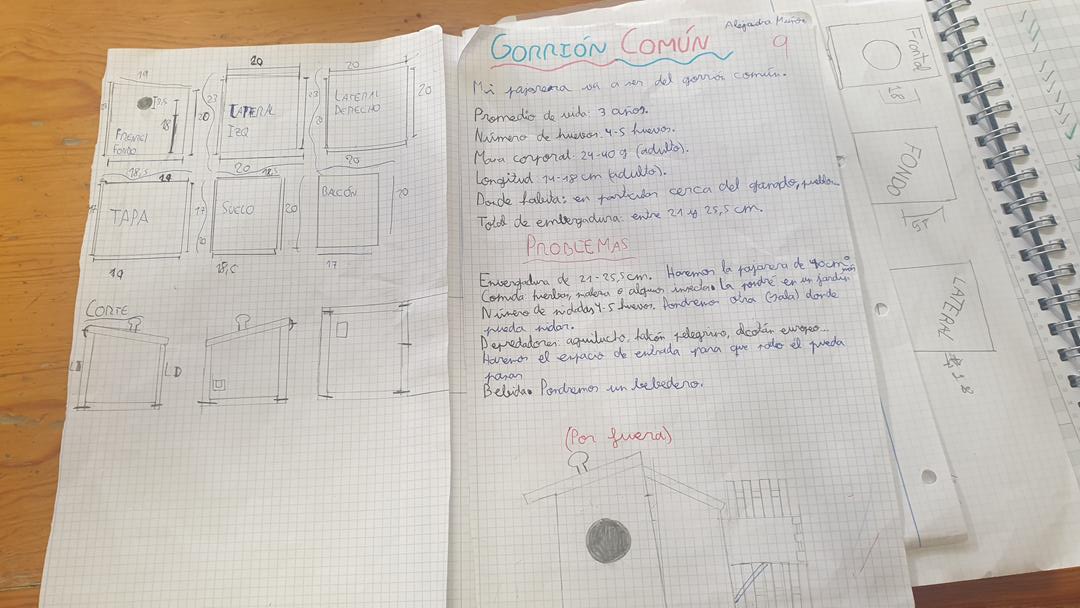 20
19
20
FRENTE/
FONDO
18
23
20
LATERAL
IZQ
23
LATERAL
DERECHO
20
18,5
20
18,5
20
TAPA
17
SUELO
20
BALCÓN
20
19
18,5
17
CORTE
LD
Alejandra Muñoz
GORRIÓN COMÚN
9
Mi pajarera va a ser del gorrión común.
Promedio de vida: 3 años.
Número de huevos: 4-5 huevos.
Masa corporal: 24-40 g (adulto).
Longitud 14-18 cm (adulto).
Donde habita: en particular cerca del ganado, pueblo...
Total de embergadura: entre 21 y 25,5 cm.
PROBLEMAS
Envergadura de 21-25,5 cm. Haremos la pajarera de 40cm
Comida: hierbas, maleza o algunos insectos. La pondré en un jardín
Número de nidadas 4-5 huevos. Pondremos otra (sala) donde
pueda nidar.
Depredadores: aguilucho, halcón peregrino, alcotán europeo...
Haremos el espacio de entrada para que solo él pueda
pasar
Bebida: Pondremos un bebedero.
(Por fuera)
Frontal
18
FONDO
LATERAL
18